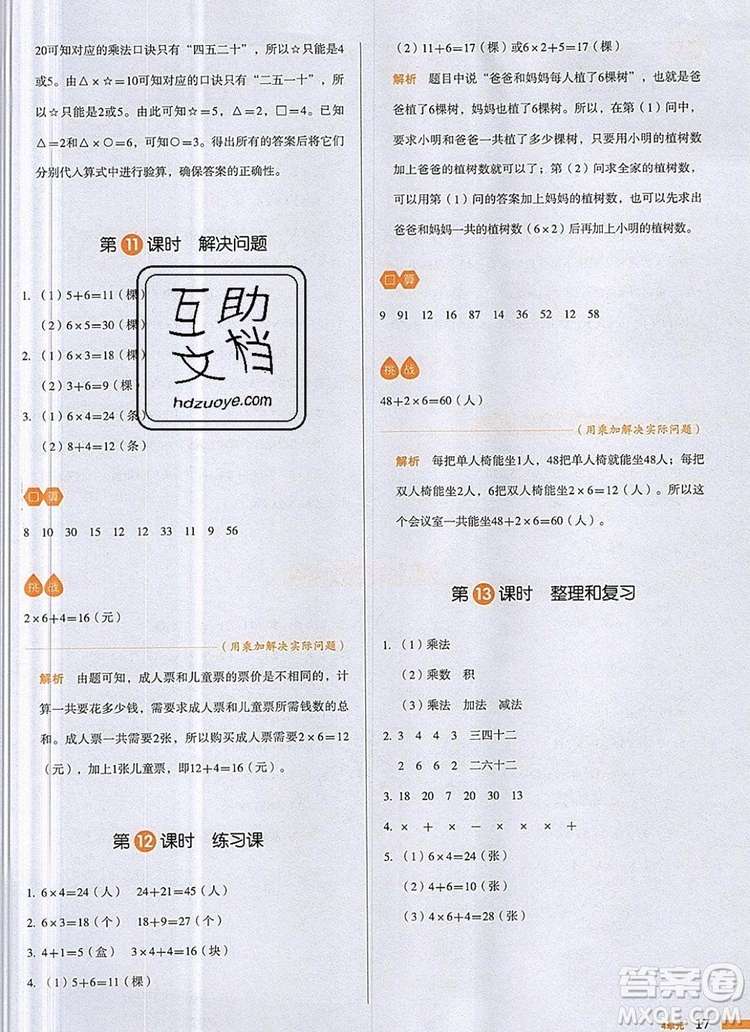 20可知对应的乘法口诀只有“四五二十”，所以☆只能是4
或5。由△×☆=10可知对应的口诀有“二五一十”，所
以☆只能是2或5。所以☆=5，△=2，□=4。已知
△=2，○÷△=3。得出所有的答案后将它们
分别代人算式中进行验算，确保答案的正确性。
第11课时 解决问题
1.（1）5+6=11（棵）
（2）6×5=30（棵）
2.（1）6×3=18（棵）
（2）3+6=9（棵）
3.（1）6×4=24（条）
（2）8+4=12（条）
口算
8 10 30 15 12 12 13 9 56
挑战
2×6+4=16（元）
（用乘加解决实际问题）
解析 由题可知，成人票和儿童票的票价是不相同的，计
算一共要花多少钱，需要求成人票和儿童票所需钱数的总
和。成人票一共需要2张，所以购买成人票需要2×6=12
（元），加上1张儿童票，即12+4=16（元）。
第12课时 练习课
1. 6×4=24（人） 24+21=45（人）
2. 6×3-1=17（个） 18+9=27（个）
3. 4+1=5（盒） 3×4+4=16（块）
4.（1）5+6=11（棵）
（2）11+6=17（棵）或6×2+5=17（棵）
解析 题目中说“爸爸和妈妈每人植了6棵树”，就是爸
爸植了6棵树，妈妈也植了6棵树。所以，在第（1）问中，
要求小明和爸爸一共植了多少棵树，需要用小明的植树数
加上爸爸的植树数。第（2）问求全家的植树数，可以用
第（1）问的答案加上妈妈的植树数，也可以先用乘法求
爸爸和妈妈一共的植树数后再加上小明的植树数。
口算
9 91 12 16 87 14 36 12 58
挑战
48+2×6=60（人）
（用乘加解决实际问题）
解析 每把单人椅能坐1人，48把单人椅能坐48人；每把
双人椅能坐2人，6把双人椅能坐2×6=12（人）。所以这
个会议室一共能坐48+2×6=60（人）。
第13课时 整理和复习
1.（1）乘法
（2）乘数 积
（3）乘法 加法 减法
2. 3 4 4 3 三四十二
2 6 6 2 二六十二
3. 18 20 7 20 30 13
4. × + - - × × +
5.（1）6×4=24（张）
（2）4+6=10（张）
（3）4×6+4=28（张）
4单元· 17
互助
文档
hdzuoye.com
答案圈
MXQE.COM